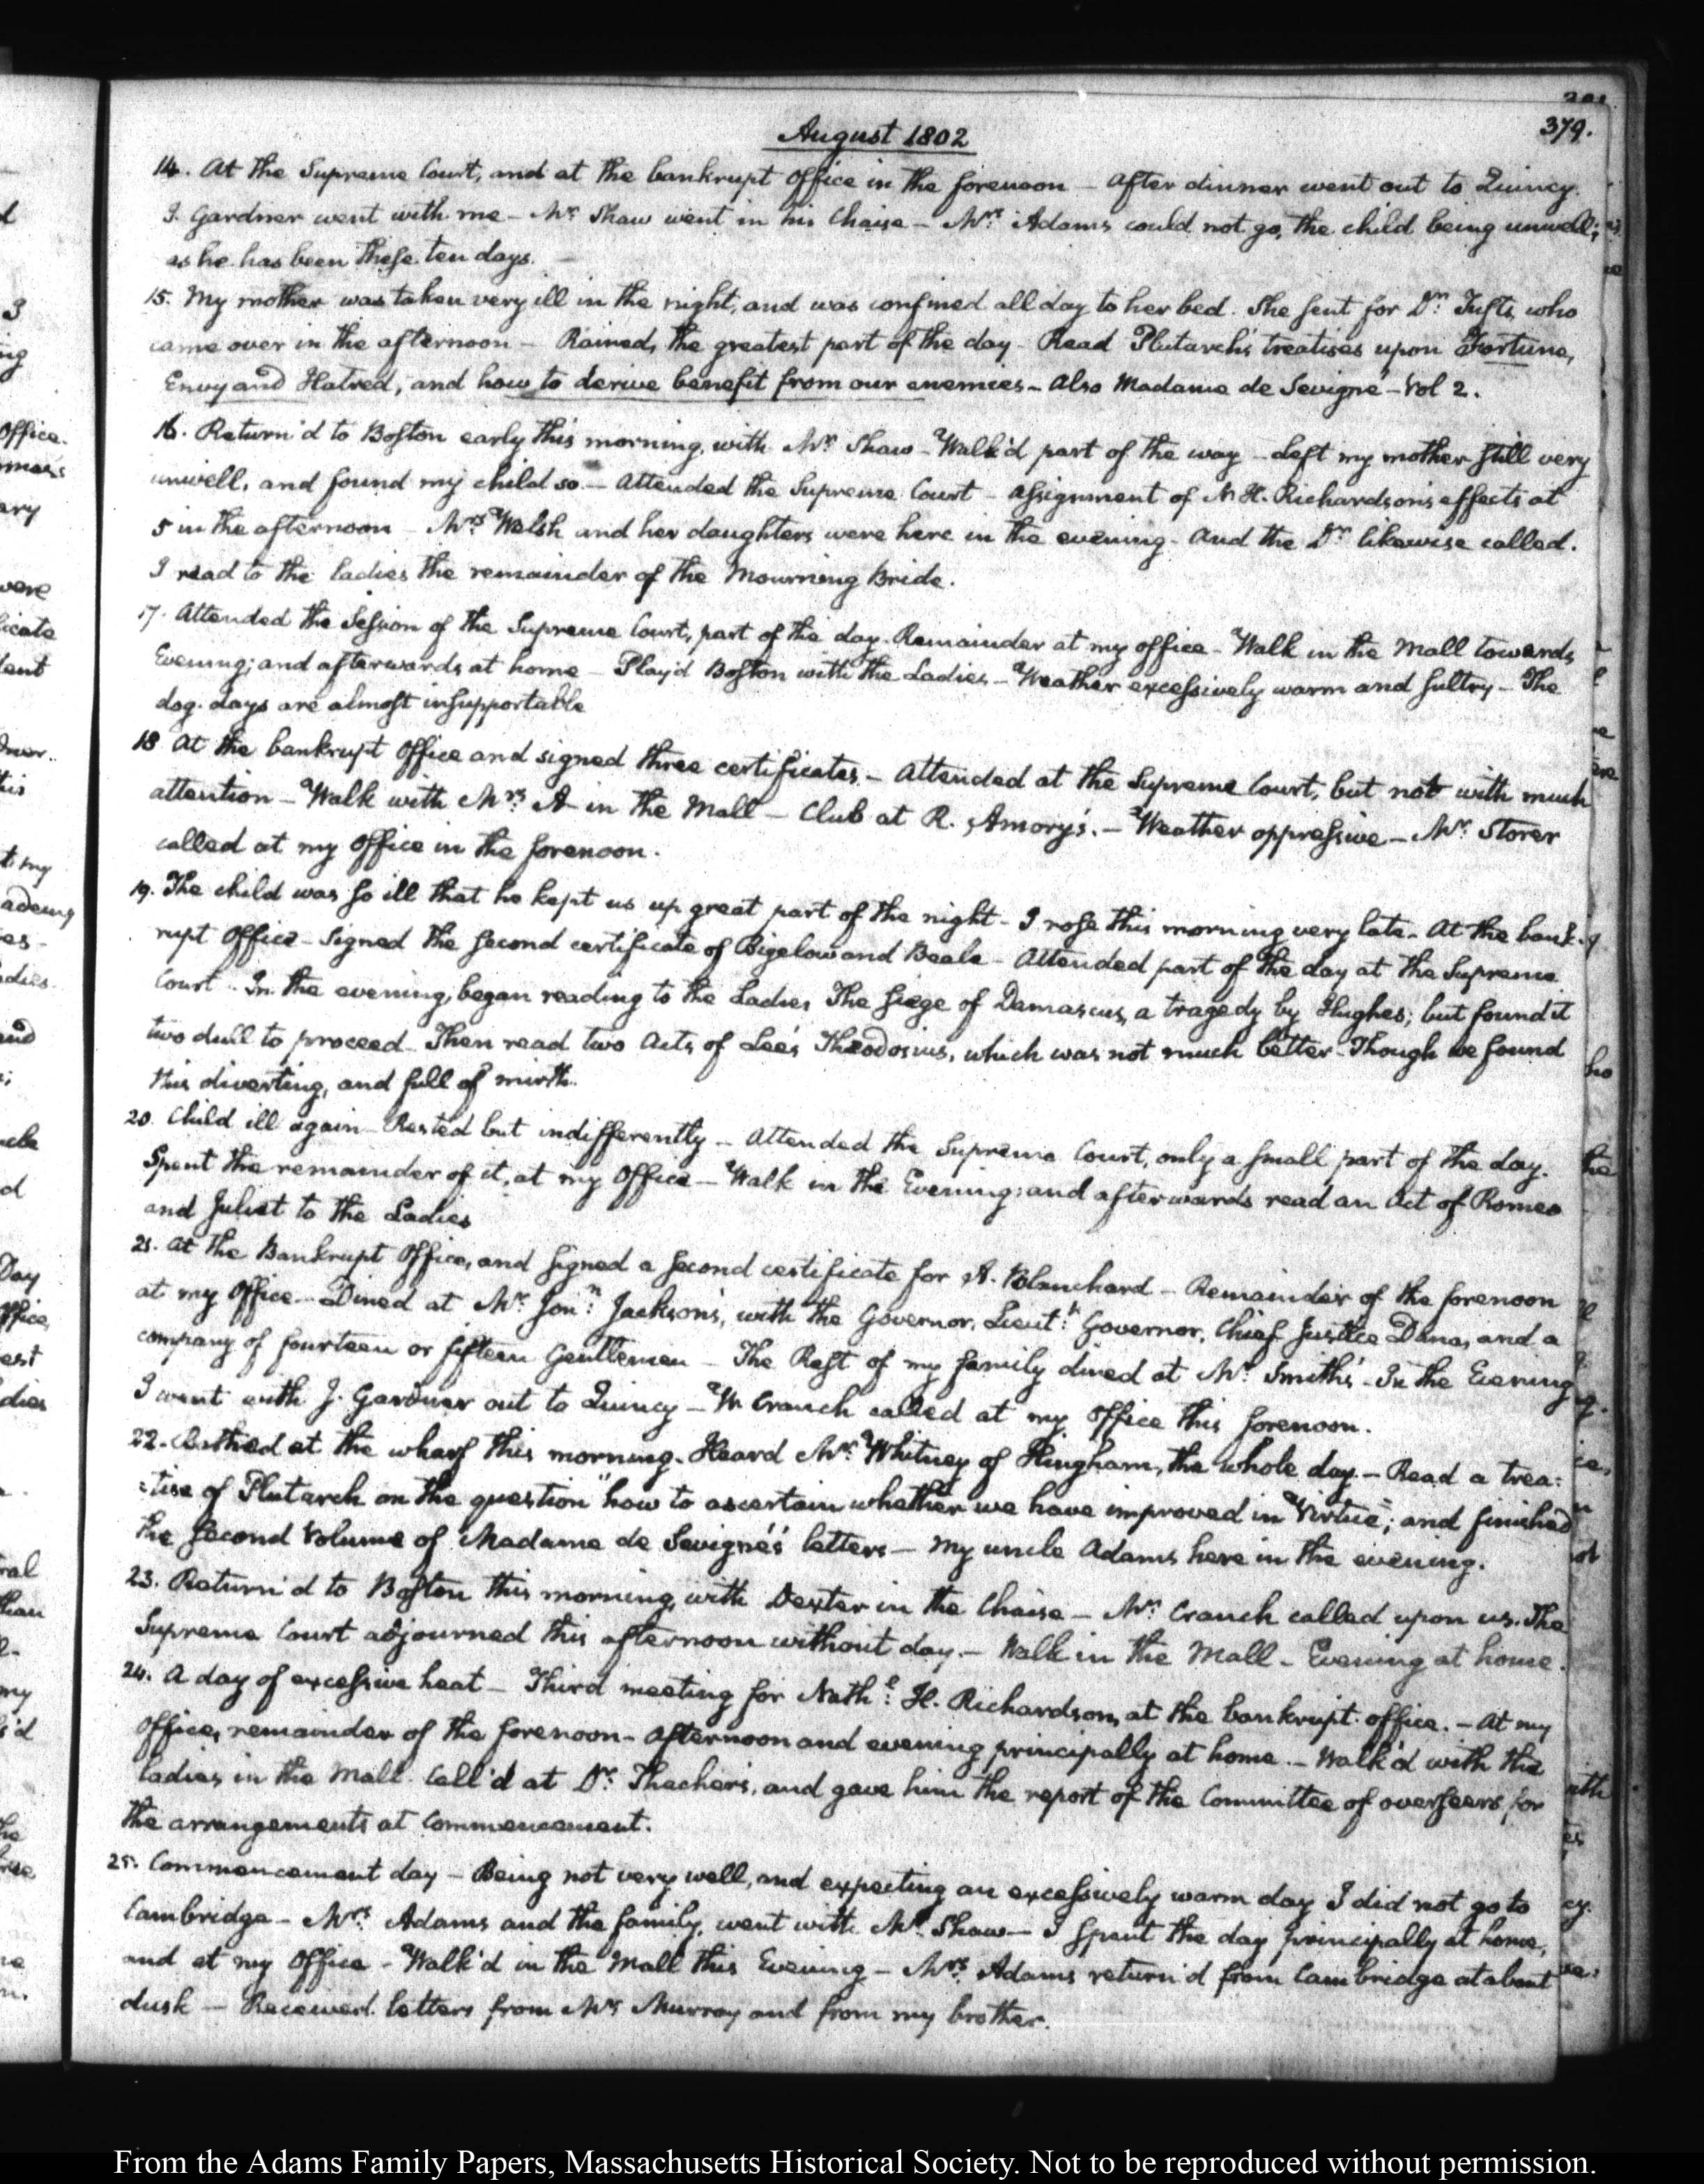 379.
August 1802
14. At the Supreme Court, and at the bankrupt Office in the forenoon — After dinner went out to Quincy.
J. Gardner went with me — Mr: Shaw went in his Chaise — Mrs: Adams could not go, the child being unwell;
as he has been these ten days. —
15. My mother was taken very ill in the night, and was confined all day to her bed. She sent for Dr: Tufts, who
came over in the afternoon — Rained, the greatest part of the day — Read Plutarch's treatises upon Fortune,
Envy and Hatred, and how to derive benefit from our enemies — Also Madame de Sevigné — Vol 2.
16. Return'd to Boston early this morning, with Mr: Shaw — Walk'd part of the way — Left my mother still very
unwell, and found my child so. — Attended the Supreme Court — Assignment of N. H. Richardson's effects at
5 in the afternoon — Mrs: Welsh and her daughters were here in the evening — And the Dr: likewise called.
I read to the ladies the remainder of the Mourning Bride.
17. Attended the Session of the Supreme Court, part of the day. Remainder at my office — Walk in the Mall towards
Evening; and afterwards at home — Play'd Boston with the Ladies — Weather excessively warm and sultry — The
dog-days are almost insupportable
18 At the bankrupt Office and signed three certificates — Attended at the Supreme Court, but not with much
attention — Walk with Mrs: A in the Mall — Club at R. Amory's. — Weather oppressive — Mr: Storer
called at my Office in the forenoon.
19. The child was so ill that he kept us up great part of the night — I rose this morning very late — At the bank-
rupt Office — Signed the second certificate of Bigelow and Beale — Attended part of the day at the Supreme
Court — In the evening began reading to the Ladies The Siege of Damascus, a tragedy by Hughes; but found it
two dull to proceed — Then read two Acts of Lee's Theodosius, which was not much better — Though we found
this diverting, and full of mirth.
20. Child ill again — Rested but indifferently — Attended the Supreme Court, only a small part of the day.
Spent the remainder of it, at my Office — Walk in the Evening; and afterwards read an Act of Romeo
and Juliet to the Ladies
21. At the Bankrupt Office, and signed a second certificate for A. Blanchard — Remainder of the forenoon
at my Office — Dined at Mr: Jonn: Jackson's, with the Governor, Lieutt: Governor, Chief Justice Dana, and a
company of fourteen or fifteen Gentlemen — The Rest of my family dined at Mr: Smith's — In the Evening
I went with J. Gardner out to Quincy — W Cranch called at my Office this forenoon.
22. Bathed at the wharf this morning. Heard Mr: Whitney of Hingham, the whole day. — Read a trea:
:tise of Plutarch on the question "how to ascertain whether we have improved in Virtue"; and finished
the second Volume of Madame de Sevigné's letters — My uncle Adams here in the evening.
23. Return'd to Boston this morning, with Dexter in the Chaise — Mr: Cranch called upon us. The
Supreme Court adjourned this afternoon without day. — Walk in the Mall — Evening at home.
24. A day of excessive heat — Third meeting for Nathl: H. Richardson, at the bankrupt office. — At my
Office, remainder of the forenoon — Afternoon and evening principally at home. — Walk'd with the
ladies in the Mall. Call'd at Dr: Thacher's, and gave him the report of the Committee of overseers for
the arrangements at Commencement.
25. Commencement day — Being not very well, and expecting an excessively warm day I did not go to
Cambridge — Mrs: Adams and the family, went with Mr Shaw — I spent the day principally at home,
and at my Office — Walk'd in the Mall this Evening — Mrs: Adams return'd from Cambridge at about
dusk — Received letters from Mr Murray and from my brother.
From the Adams Family Papers, Massachusetts Historical Society. Not to be reproduced without permission.